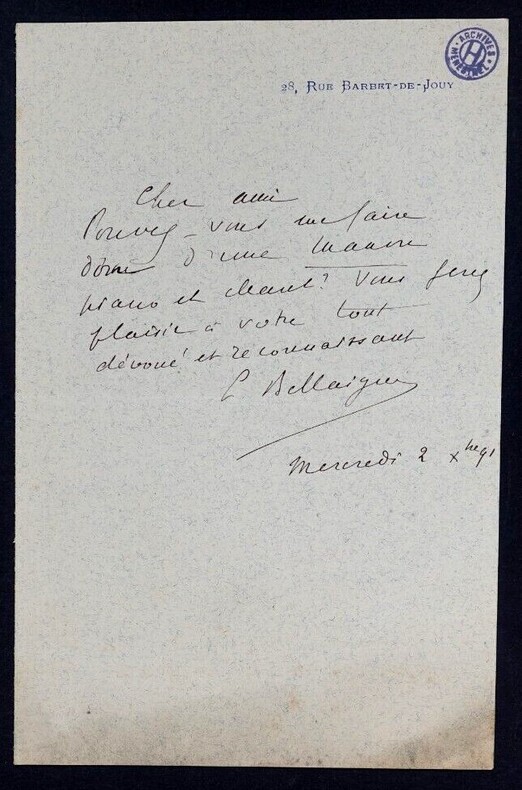 ARCHIVES H MENESTREL
28, Rue Barbet-de-Jouy
Cher ami
Pouvez-vous me faire
don d'une Manon
piano et chant? Vous ferez
plaisir à votre tout
dévoué et reconnaissant
C Bellaigue
Mercredi 2 Xbre 91